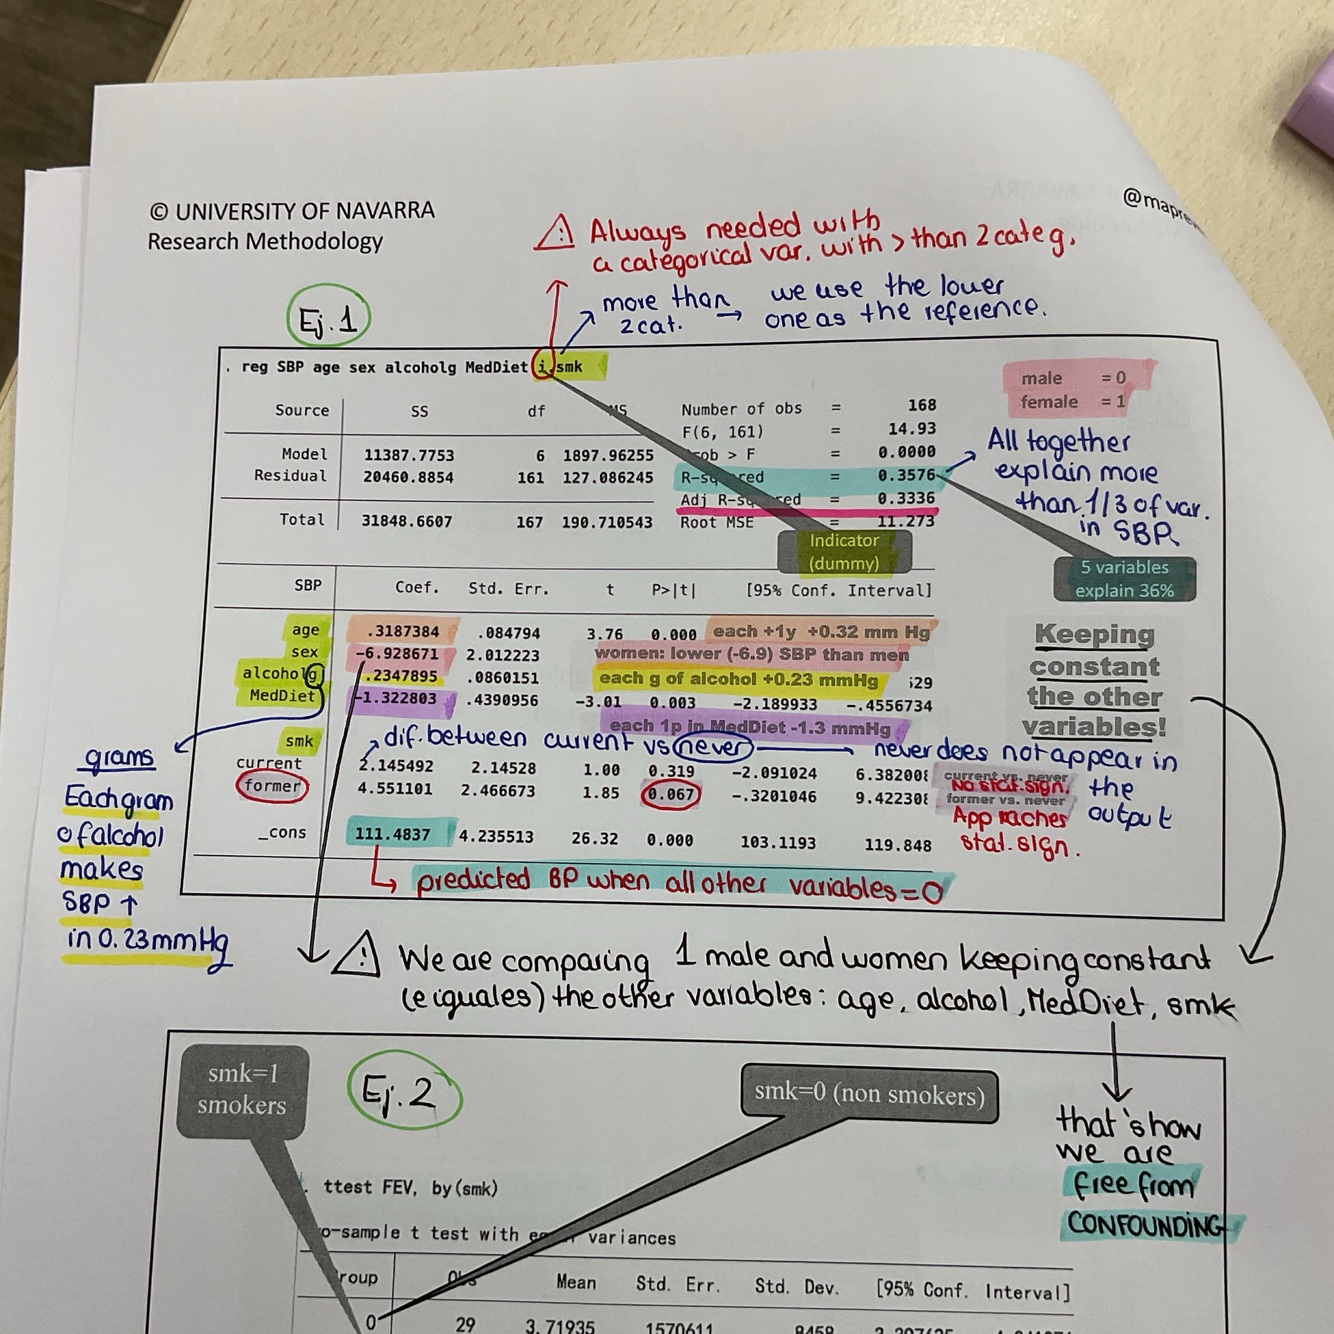 © UNIVERSITY OF NAVARRA
Research Methodology
⚠ Always needed with
a categorical var. with > than 2 categ.
Ej.1
more than
2 cat. → we use the lower
one as the reference.
. reg SBP age sex alcoholg MedDiet i.smk
male = 0
female = 1
Source SS df MS
Model 11387.7753 6 1897.96255
Residual 20460.8854 161 127.086245
Total 31848.6607 167 190.710543
Number of obs = 168
F(6, 161) = 14.93
ob > F = 0.0000
R-sq red = 0.3576
Adj R-sq red = 0.3336
Root MSE = 11.273
All together
explain more
than 1/3 of var.
in SBP.
Indicator
(dummy)
5 variables
explain 36%
SBP Coef. Std. Err. t P>|t| [95% Conf. Interval]
age .3187384 .084794 3.76 0.000 each +1y +0.32 mm Hg
sex -6.928671 2.012223 women: lower (-6.9) SBP than men
alcoholg .2347895 .0860151 each g of alcohol +0.23 mmHg 529
MedDiet -1.322803 .4390956 -3.01 0.003 -2.189933 -.4556734
each 1p in MedDiet -1.3 mmHg
Keeping
constant
the other
variables!
smk dif. between current vs never → never does not appear in
the
output
current 2.145492 2.14528 1.00 0.319 -2.091024 6.382008 current vs. never
No stat. sign.
former 4.551101 2.466673 1.85 0.067 -.3201046 9.422308 former vs. never
Approaches
stat. sign.
_cons 111.4837 4.235513 26.32 0.000 103.1193 119.848
predicted BP when all other variables = 0
grams
Each gram
of alcohol
makes
SBP ↑
in 0.23 mmHg
⚠ We are comparing 1 male and women keeping constant
(e iguales) the other variables: age, alcohol, MedDiet, smk
that's how
we are
free from
CONFOUNDING
smk=1
smokers
Ej.2
smk=0 (non smokers)
. ttest FEV, by(smk)
o-sample t test with variances
roup Obs Mean Std. Err. Std. Dev. [95% Conf. Interval]
0 29 3.71935 1570611